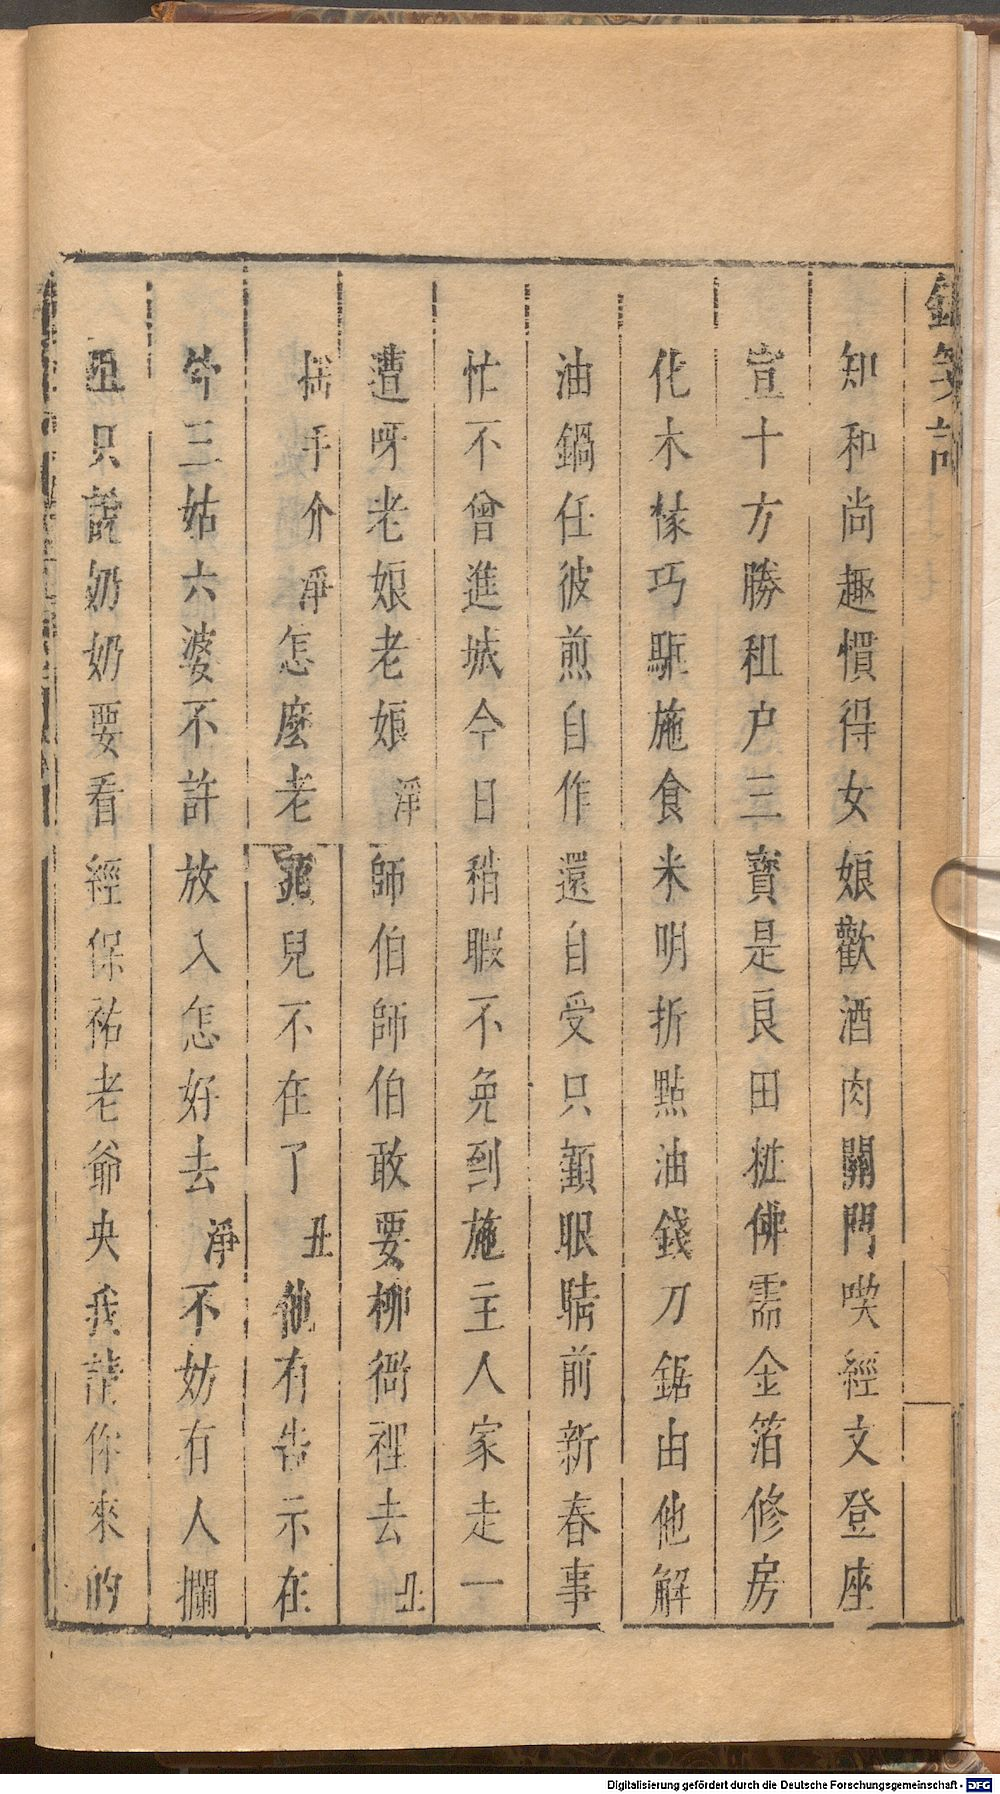 錦箋記
知和尚趣慣得女娘歡酒肉關門喫經文登座
宣十方勝租户三寶是良田粧佛需金箔修房
化木椽巧駈施食米明折點油錢刀鋸由他解
油鍋任彼煎自作還自受只顧眼睛前新春事
忙不曾進城今日稍暇不免到施主人家走一
遭呀老娘老娘淨師伯師伯敢要柳衙裡去丑
搖手介淨怎麼老兒不在了丑他有告示在
三姑六婆不許放入怎好去淨不妨有人攔
阻只說奶奶要看經保祐老爺央我請你來的
Digitalisierung gefördert durch die Deutsche Forschungsgemeinschaft - DFG